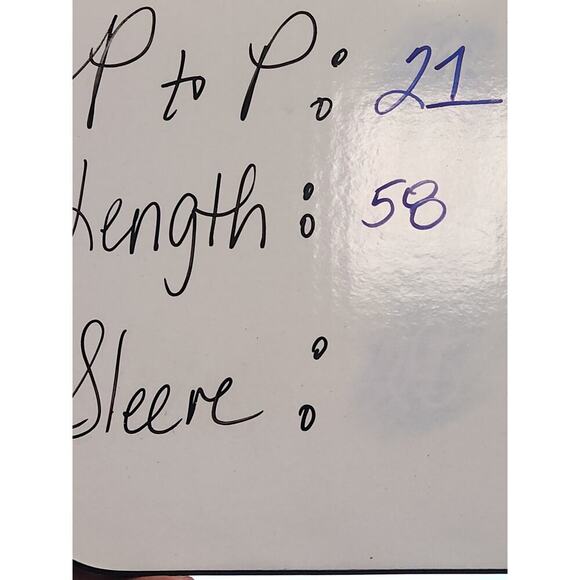 P to P: 21
Length: 58
Sleeve: